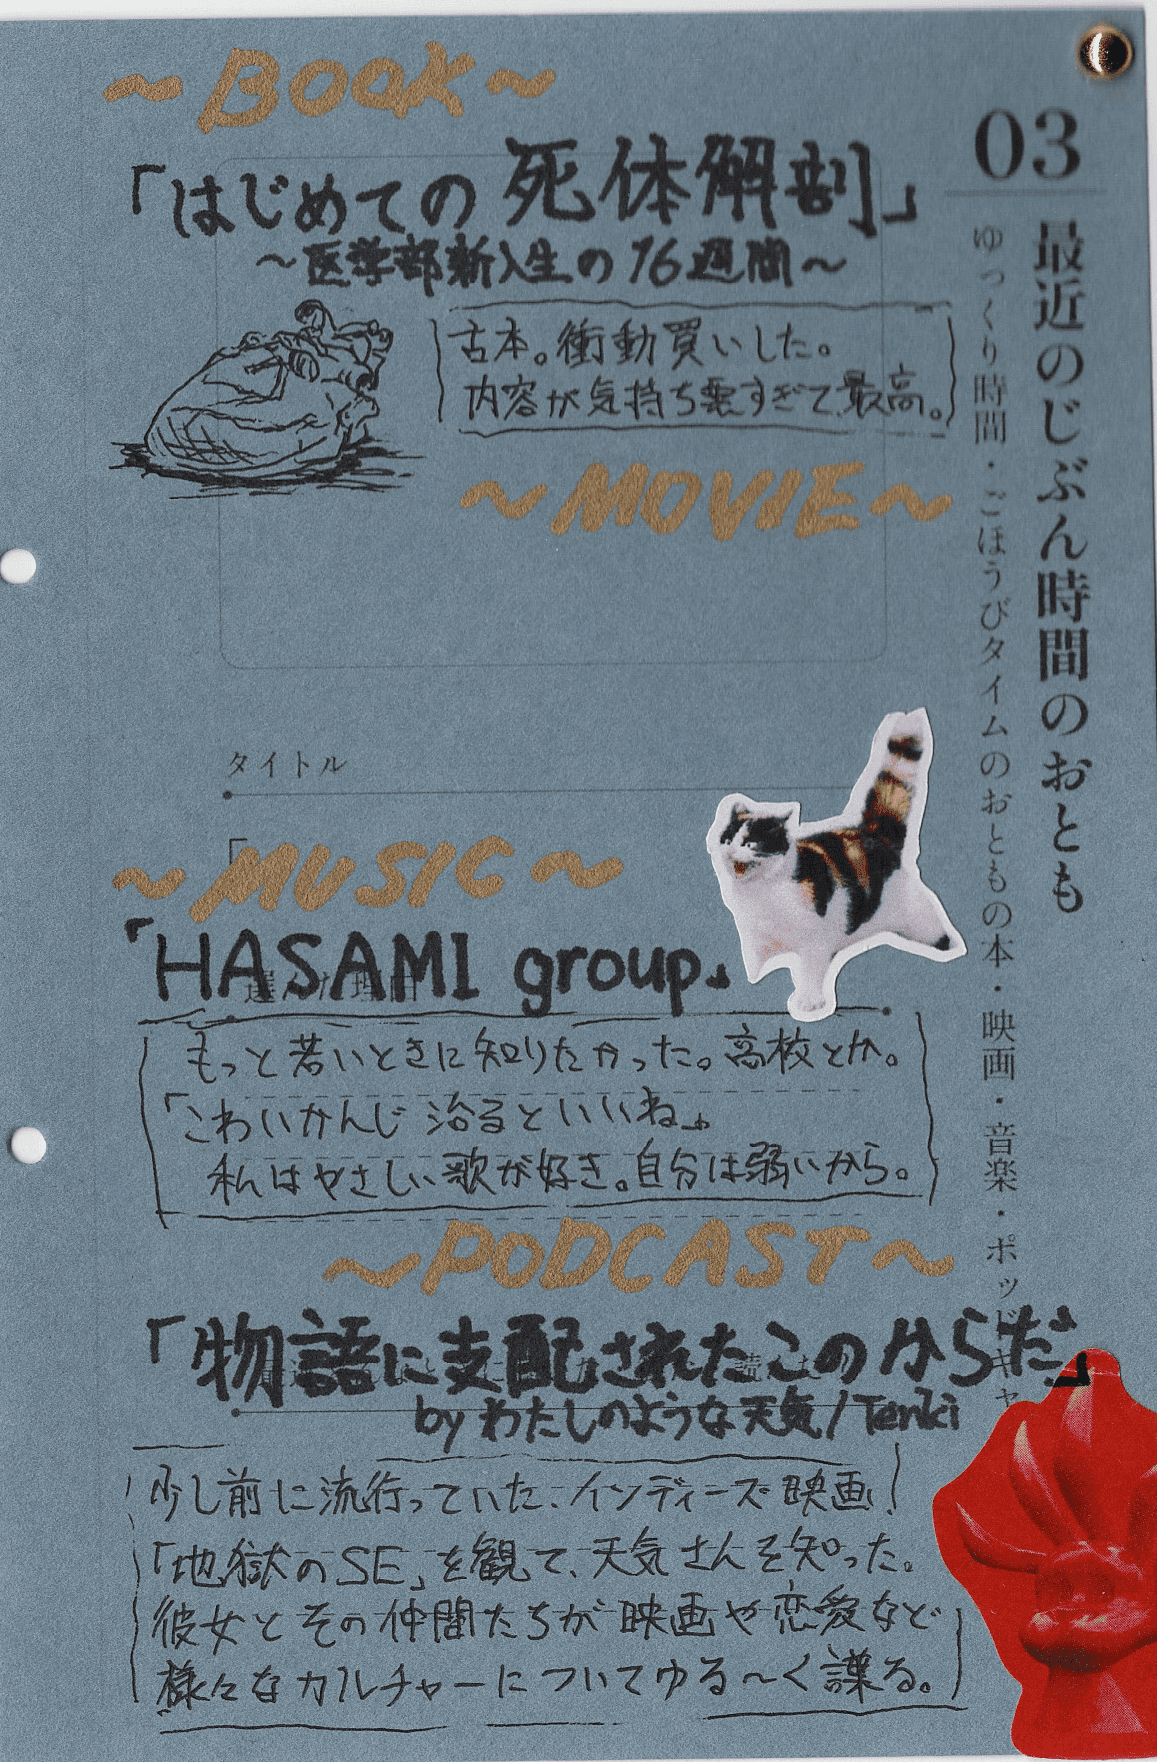 03
最近のじぶん時間のおとも
ゆっくり時間・ごほうびタイムのおともの本・映画・音楽・ポッドキャ
~BOOK~
「はじめての死体解剖」
~医学部新入生の16週間~
古本。衝動買いした。
内容が気持ち悪すぎて最高。
~MOVIE~
タイトル
~MUSIC~
「HASAMI group」
選んだ理由
もっと若いときに知りたかった。高校とか。
「こわいかんじ治るといいね」
私はやさしい歌が好き。自分は弱いから。
~PODCAST~
「物語に支配されたこのからだ」
by わたしのような天気/Tenki
少し前に流行っていた、インディーズ映画
「地獄のSE」を観て、天気さんを知った。
彼女とその仲間たちが映画や恋愛など
様々なカルチャーについてゆる~く譲る。